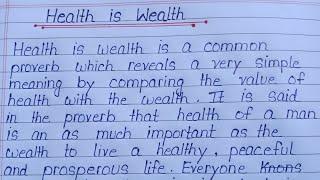 Health is Wealth
Health is wealth is a common
proverb which reveals a very simple
meaning by comparing the value of
health with the wealth. It is said
in the proverb that health of a man
is an as much important as the
wealth to live a healthy, peaceful
and prosperous life. Everyone knons